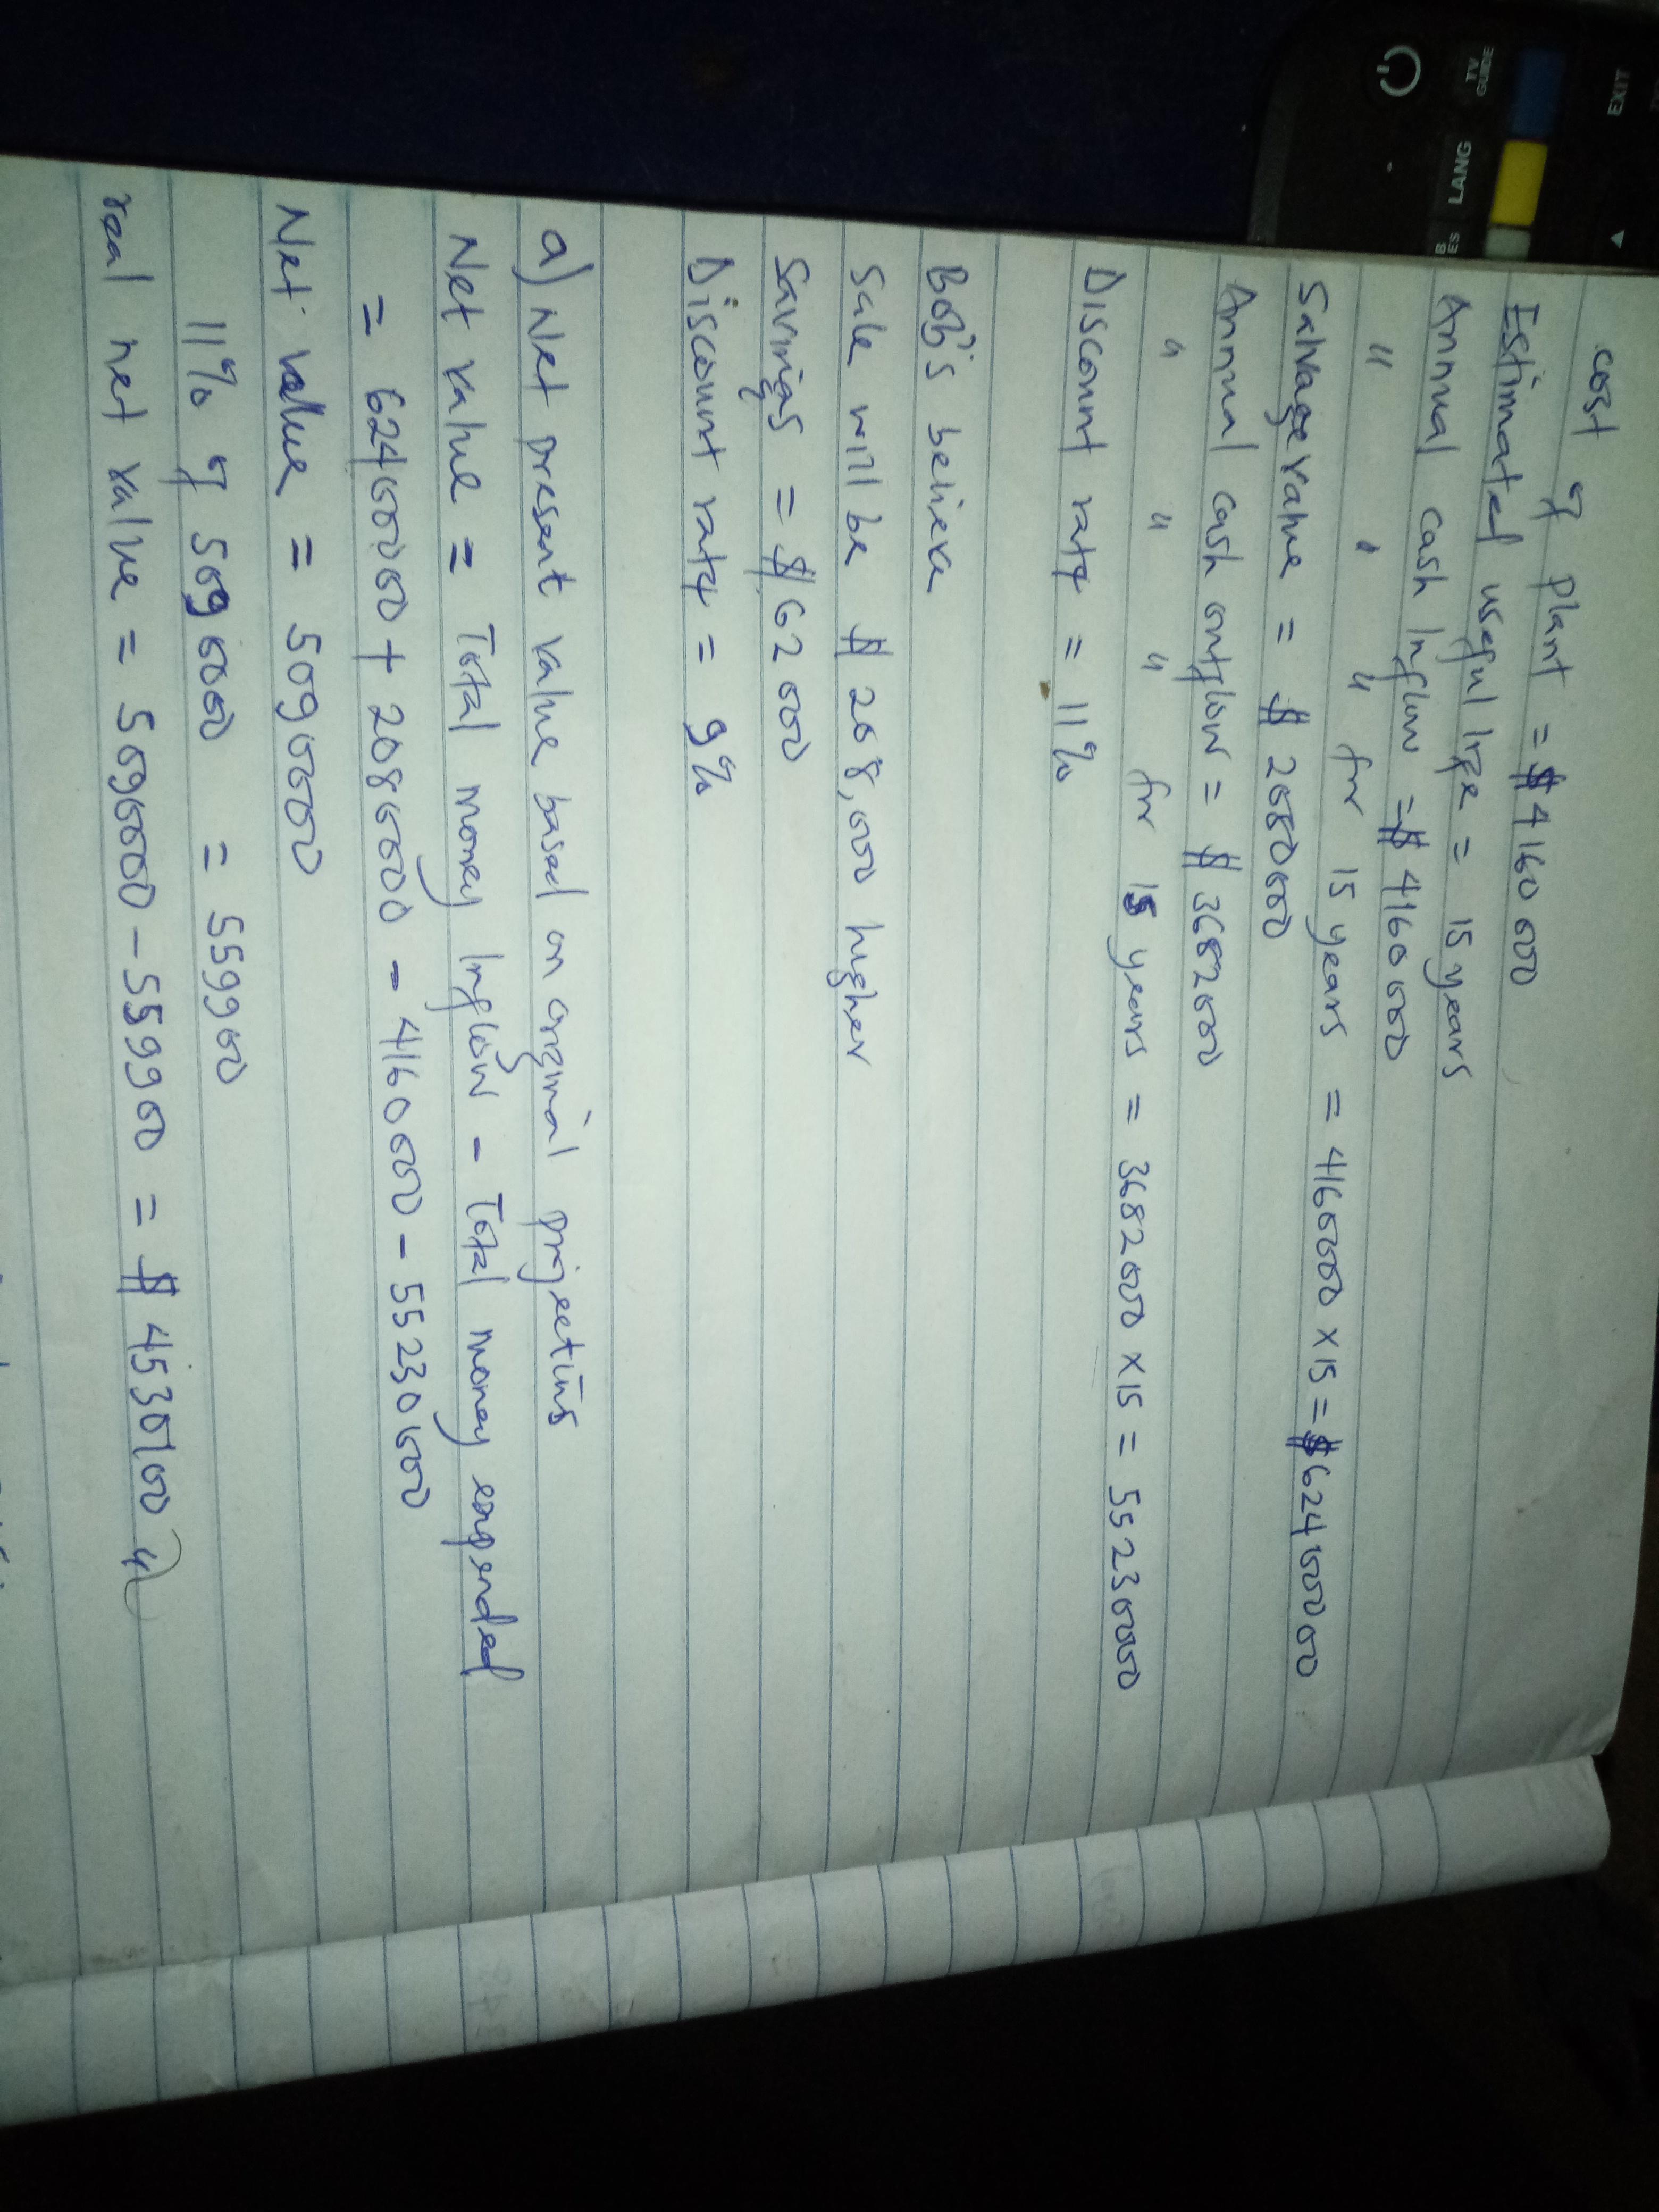 cost of plant = $4160 000
Estimated useful life = 15 years
Annual cash Inflow = $ 4160 000
" " " for 15 years = 4160000 x 15 = $62400000
Salvage value = $ 2080000
Annual cash outflow = $ 3682000
" " " for 15 years = 3682000 x 15 = 55230000
Discount rate = 11%
Bob's believe
Sale will be $ 208,000 higher
Savings = $ 62 000
Discount rate = 9%
a) Net present value based on original projections
Net value = Total money Inflow - Total money expended
= 62400000 + 2080000 - 4160 000 - 55230000
Net value = 5090000
11% of 5090000 = 559900
real net value = 5090000 - 559900 = $ 4530100
EXIT
TV GUIDE
LANG